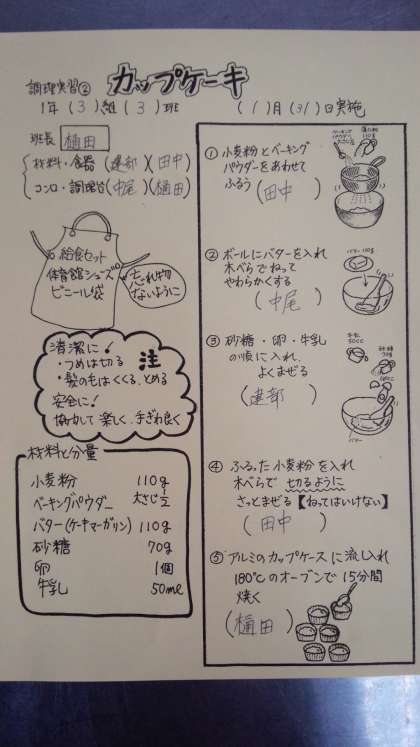 調理実習② カップケーキ
1年(3)組(3)班
(1)月(31)日実施
班長 樋田
材料・食器(建部)(田中)
コンロ・調理台(中尾)(樋田)
給食セット
体育館シューズ
ビニール袋
忘れ物
ないように
清潔に! 注
・つめは切る
・髪の毛はくくる、とめる
安全に!
協力して楽しく、手ぎわ良く
材料と分量
小麦粉 110g
ベーキングパウダー 大さじ1/2
バター(ケーキマーガリン) 110g
砂糖 70g
卵 1個
牛乳 50ml
①小麦粉とベーキング
パウダーをあわせて
ふるう(田中)
②ボールにバターを入れ
木べらでねって
やわらかくする
(中尾)
バター 110g
③砂糖・卵・牛乳
の順に入れ、
よくまぜる
(建部)
牛乳
50cc
砂糖
70g
バター
④ふるった小麦粉を入れ
木べらで切るように
さっとまぜる【ねってはいけない】
(田中)
⑤アルミのカップケースに流し入れ
180℃のオーブンで15分間
焼く
(樋田)